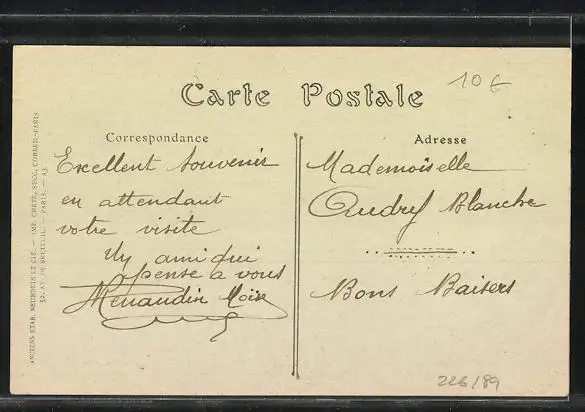 Carte Postale
10 €
Correspondance
Excellent Souvenir
en attendant
votre visite
Un ami qui
pense a vous
Renaudin Moïse
Adresse
Mademoiselle
Audref Blanche
Bons Baisers
226/89
ANCIENS ETAB. NEURDEIN ET CIE. — IMP. CRÉTÉ, SUCC., CORBEIL-PARIS
52, AV. DE BRETEUIL. — PARIS. — A3